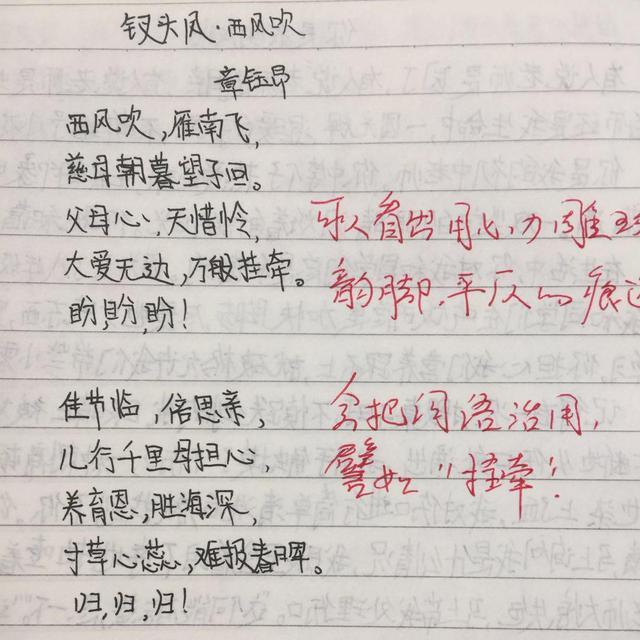 钗头风·西风吹
章钰昂
西风吹,雁南飞,
慈母朝暮望子回。
父母心,天惜怜,
大爱无边,万般挂牵。
盼,盼,盼!
可以看出用心力雕琢
韵脚,平仄的痕迹
佳节临,倍思亲,
儿行千里母担心,
养育恩,胜海深,
寸草心蕊,难报春晖。
会把词语活用,
譬如"挂牵!
归,归,归!